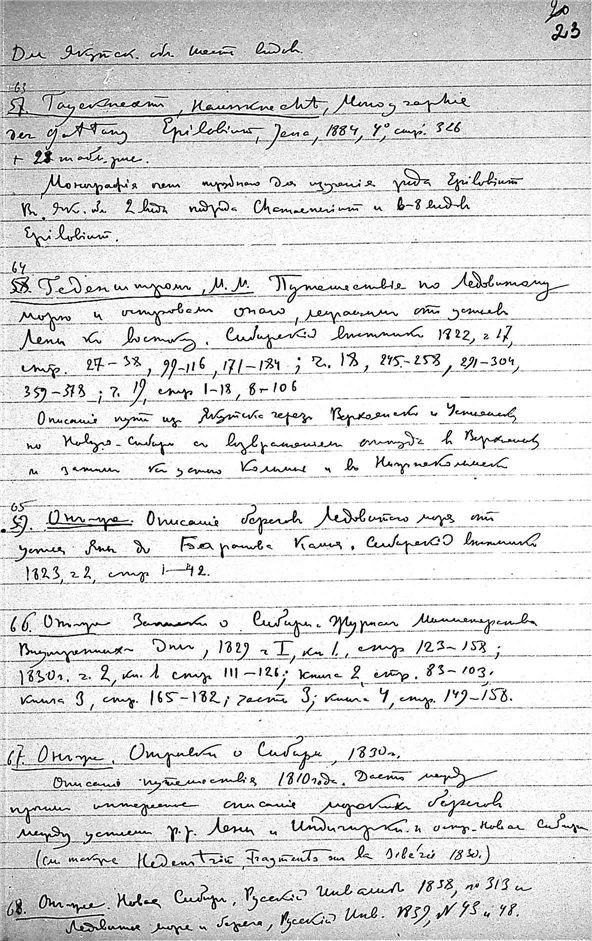 20
23
Для Якутск. обл. шесть видов.
63
57. Гаускнехт, Haussknecht, Monographie
der Gattung Epilobium, Jena, 1884, 4°, стр. 326
+ 23 табл. рис.
Монография для изучения рода Epilobium
В Як. обл. 2 вида подрода Chamaenerium и 6-8 видов
Epilobium.
64
58. Геденштром, М.М. Путешествіе по Ледовитому
морю и островам онаго, лежащим от устья
Лены к востоку. Сибирскій вѣстник 1822, ч 17,
стр. 27-38, 99-116, 171-184; ч. 18, 245-258, 291-304,
359-378; ч. 19, стр 1-18, 8+106
Описаніе пути из Якутска через Верхоянск и Устьянск
по Новую-Сибирь с возвращением оттуда в Верхоянск
и затѣм к устью Колымы и в Нижнеколымск
65
59. Он-же. Описаніе берегов Ледовитаго моря от
устья Яны до Баранова Камня. Сибирскій вѣстник
1823, ч 2, стр 1-42.
66. Он-же Записки о Сибири. Журнал Министерства
Внутренних Дѣл, 1829 ч I, кн 1, стр 123-158;
1830г. ч. 2, кн. 1 стр 111-126; книга 2, стр. 83-103;
книга 3, стр. 165-182; часть 3; книга 4, стр. 149-158.
67. Он-же. Отрывки о Сибири, 1830г.
Описаніе путешествія 1810 года. Дает между
прочим описаніе морских берегов
между устьями р.р. Лены и Индигирки и остр. Новая Сибирь
(см также Hedenström, Fragments sur la Sibérie 1830.)
68. Он-же. Новая Сибирь, Русскій Инвалид 1838, № 313 и
Ледовитое море и берега, Русскій Инв. 1839, N 43 и 48.